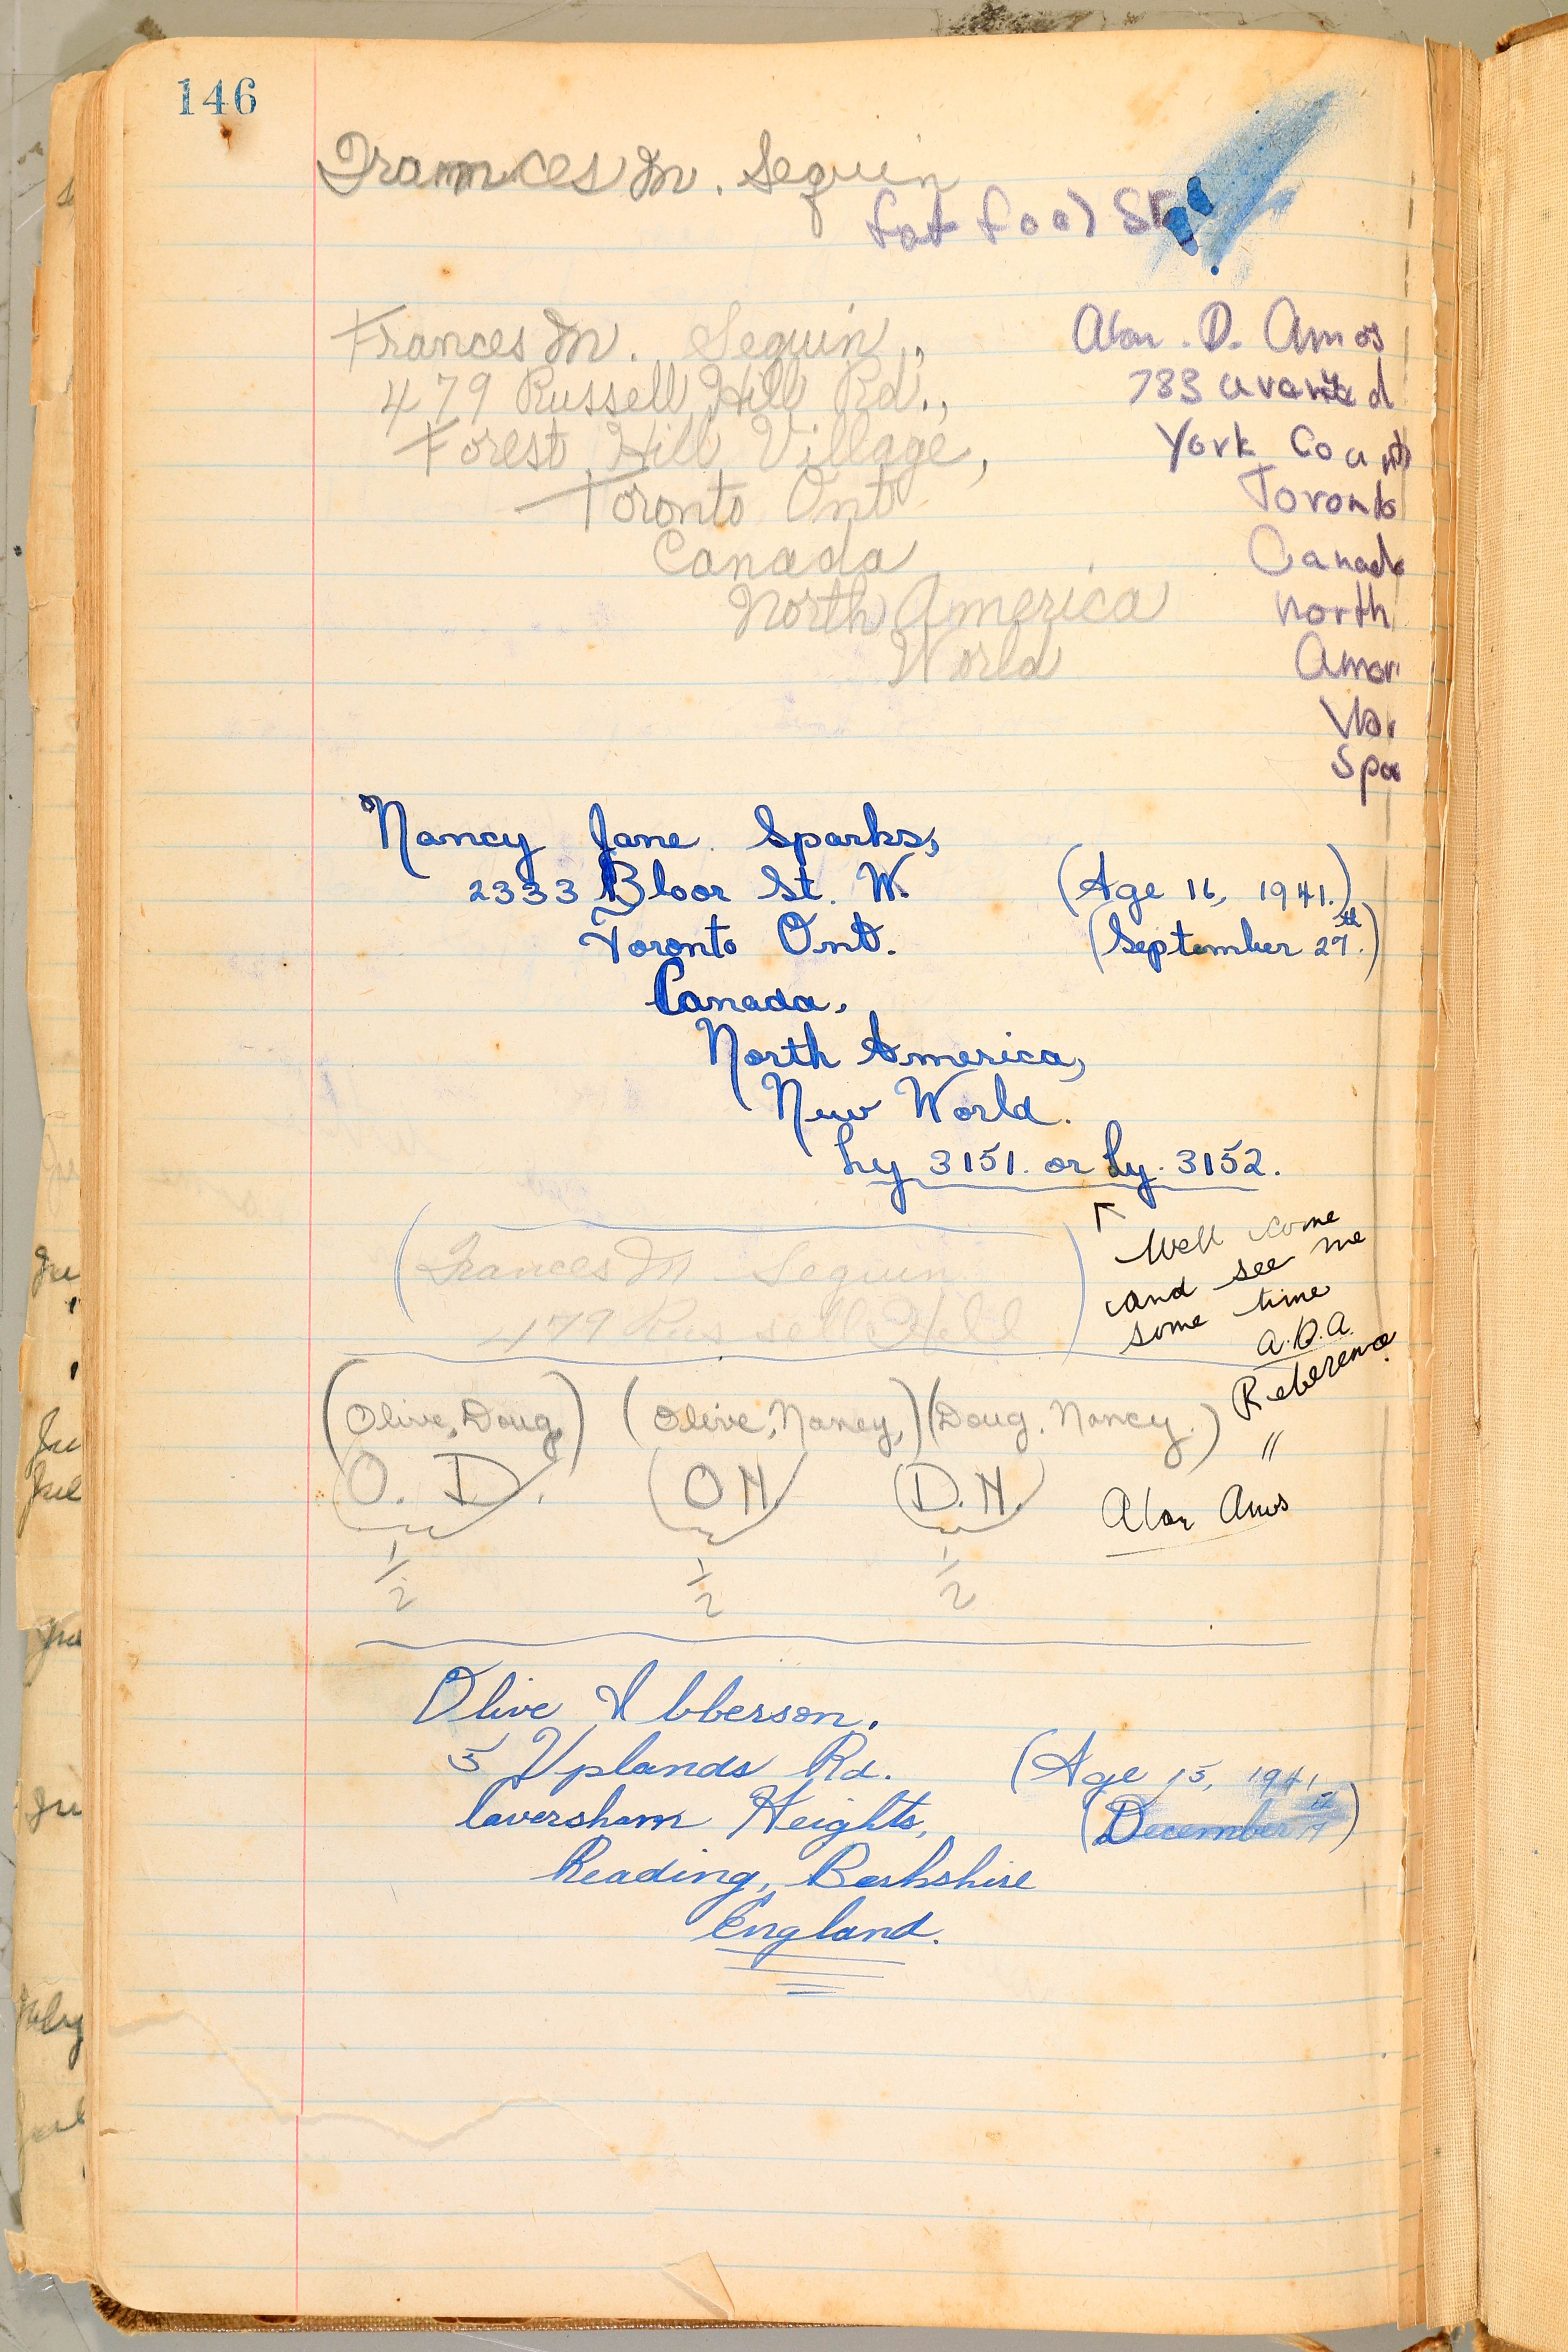 146
Frances M. Sequin
fat fool
Frances M. Sequin,,
479 Russell Hill Rd.,
Forest Hill Village,
Toronto Ont
Canada
North America
World
Alan. D. Amos
York
Toronto
Canada
North
Nancy Jane Sparks,
2333 Bloor St. W.
Toronto Ont.
Canada,
North America,
New World.
Ly 3151. or Ly. 3152.
(Age 16, 1941.)
(September 27th.)
(Frances M Sequin
479 Russell Hill)
Well come
and see me
some time
A.D.A.
(Olive, Doug) (Olive, Nancy,) (Doug, Nancy.)
O. D. O N D. N.
1/2 1/2 1/2
"
Alan Amos
Olive Ibberson.
5 Uplands Rd.
Caversham Heights,
Reading, Berkshire
England.
(Age 15, 1941
(December